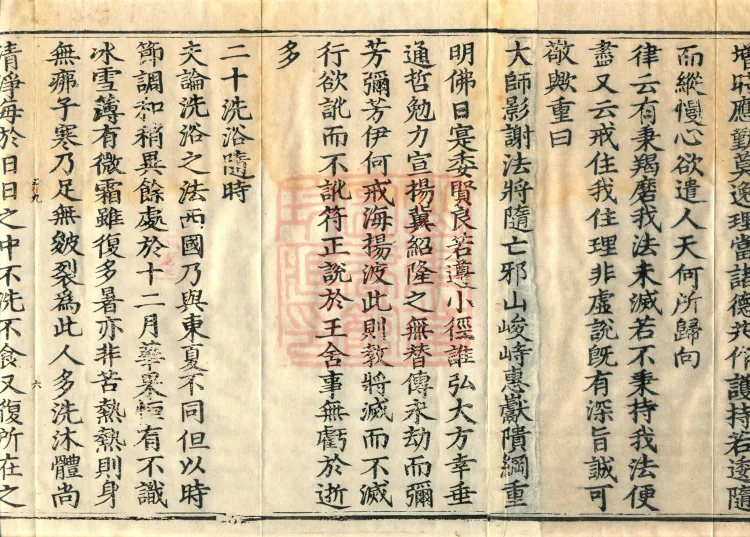 理當諸德共作護持若逶隨
而縱慢心欲遣人天何所歸向
律云有秉羯磨我法未滅若不秉持我法便
盡又云戒住我住理非虛說既有深旨誠可
敬歟重曰
大師影謝法將隨亡邪山峻峙惠巘隤綱重
明佛日寔委賢良若遵小徑誰弘大方幸垂
通哲勉力宣揚冀紹隆之無替傳永劫而彌
芳彌芳伊何戒海揚波此則教將滅而不滅
行欲訛而不訛符正說於王舍事無虧於逝
多
二十洗浴隨時
夫論洗浴之法西國乃與東夏不同但以時
節調和稍異餘處於十二月華果恒有不識
冰雪薄有微霜雖復多暑亦非苦熱熱則身
無疿子寒乃足無皴裂為此人多洗沐體尚
六
清淨每於日日之中不洗不食又復所在之